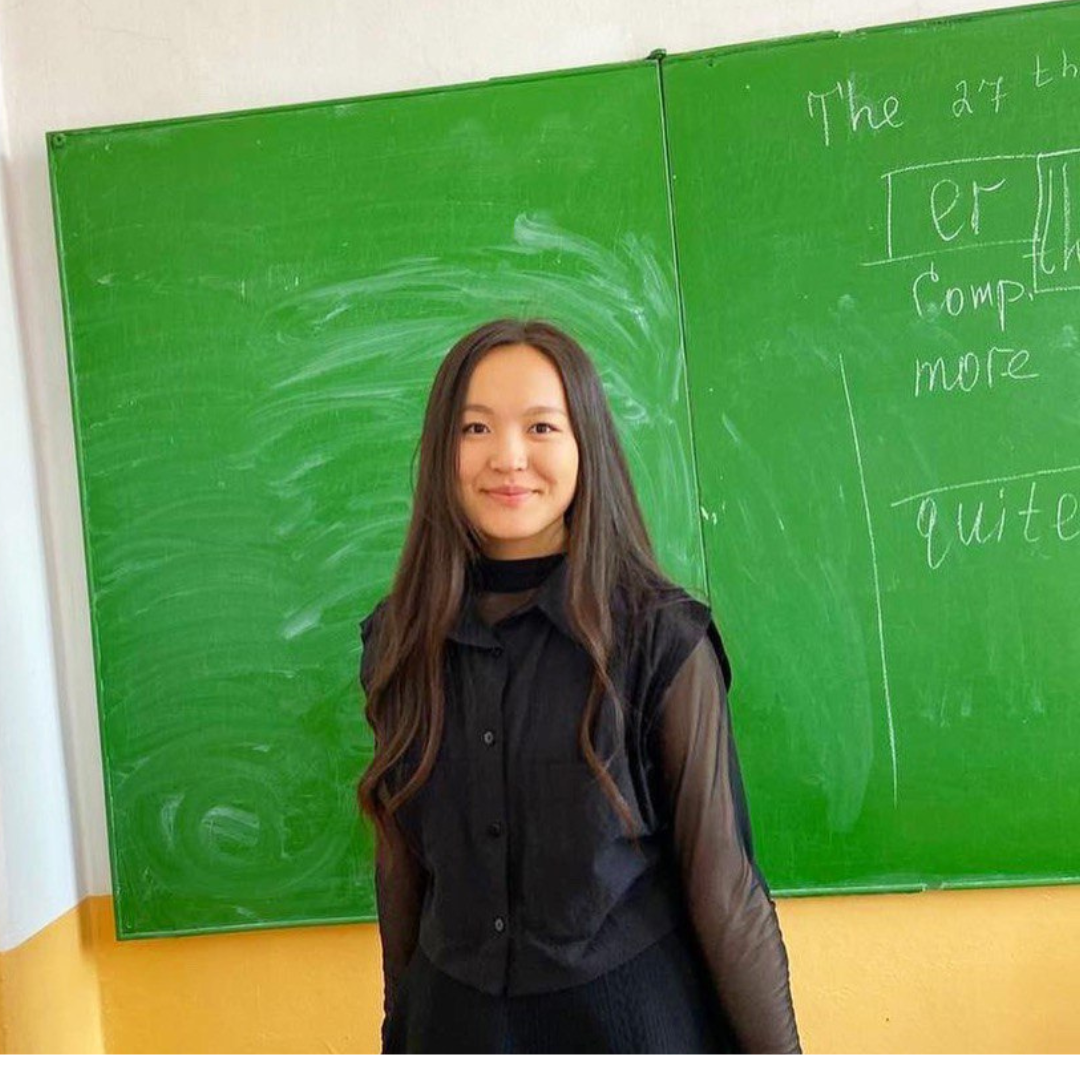 The 27 th
er th
Comp.
more
quite